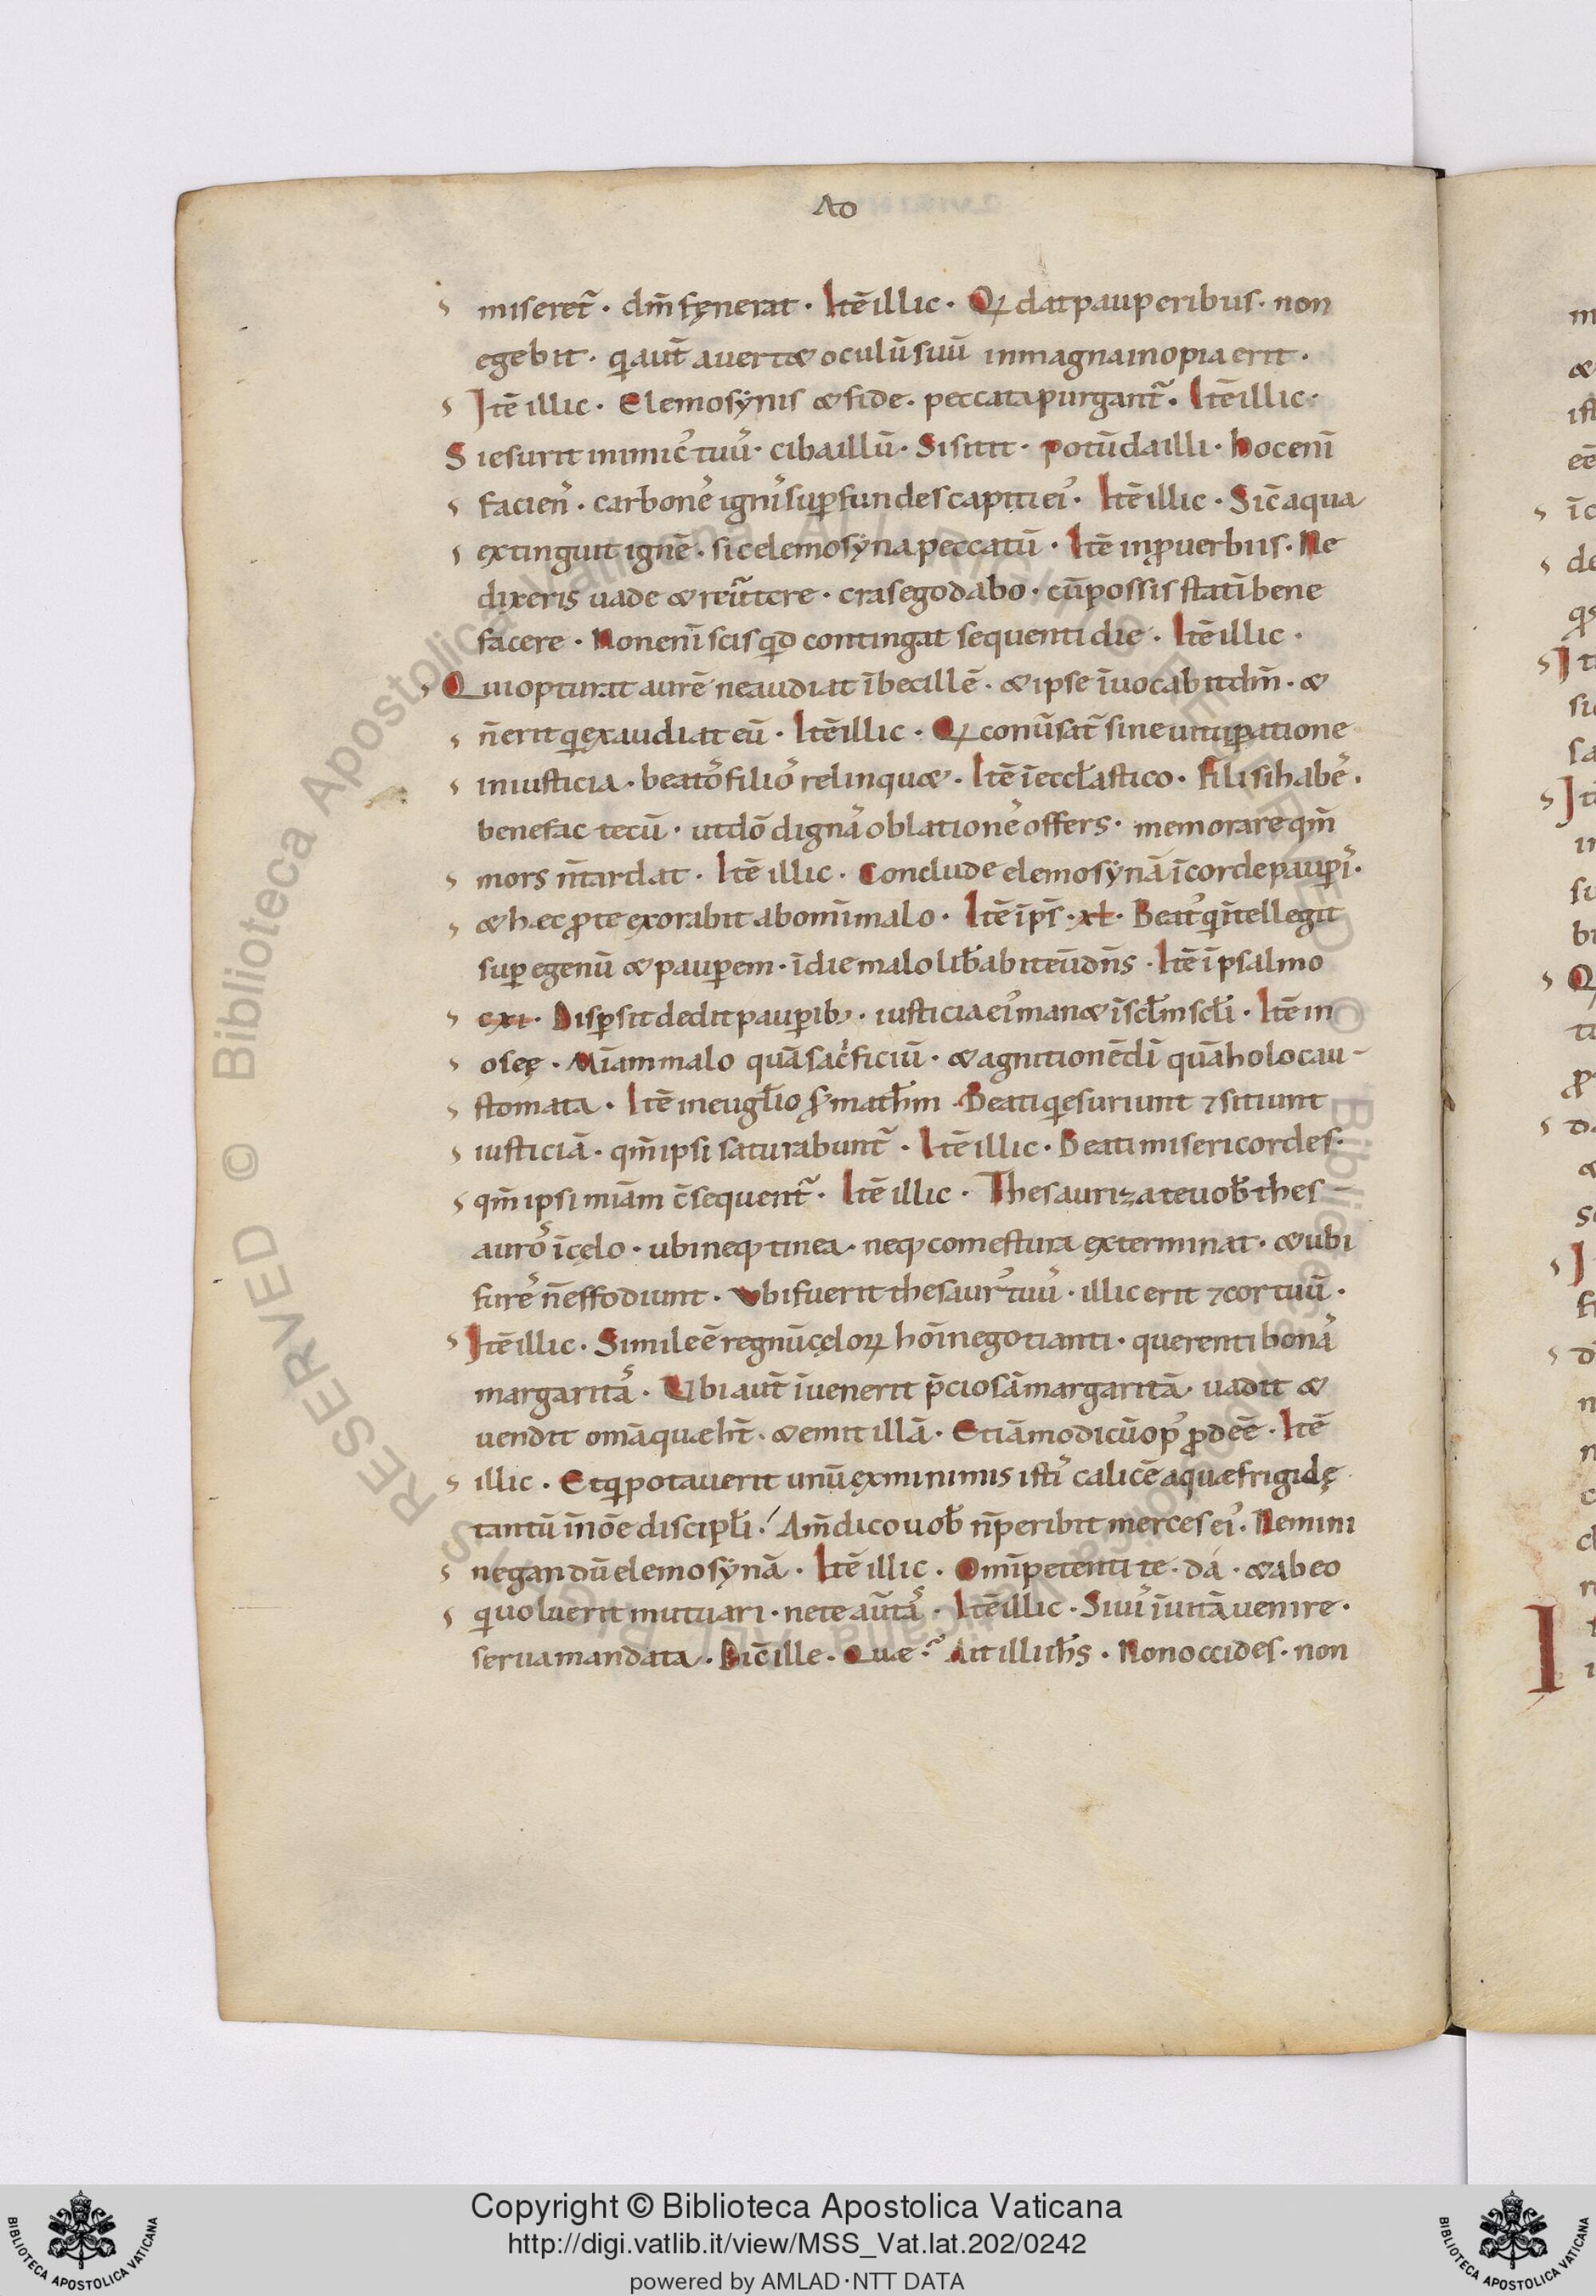 AD
miseret᷑ · dm̄ fęnerat · Itē illic · Qi dat pauperibus · non
egebit · qi aut̄ avertit & oculū suū in magna inopia erit ·
Itē illic · Elemosynis & fide · peccata purgant᷑ · Itē illic ·
Si esurit inimic᷒ tuu᷒ · ciba illū · Si sitit · potū da illi · hoc eni̅
facien᷒ · carbone᷒ igni᷒ sup fundes capiti ei᷒ · Itē illic · Sic̄ aqua
extinguit ignē · sic elemosyna peccatū · Itē in ꝓverbiis · Ne
dixeris vade & rev̄tere · cras ego dabo · cū possis statī bene
facere · Non enī scis qd contingat sequenti die · Itē illic ·
Qui opturat aurē ne audiat ībecillē · & ipse īvocabit dm̄ · &
n̄ erit qi exaudiat eū · Itē illic · Qi conv̄sat᷑ sine vitupatione
in iusticia · beato᷒ filio᷒ relinqu& · Itē ī eccl̄astico · Fili si habe᷒ ·
benefac tecū · ut dō digna᷒ oblatione᷒ offers · memorare qm̄
mors n̄ tardat · Itē illic · Conclude elemosynā ī corde paupi᷒ ·
& hec ꝓ te exorabit ab omī malo · Itē ī ps̄ · xl · Beat᷒ qi ītellegit
sup egenū & paupem · ī die malo lib̄abit eū dn̄s · Itē ī psalmo
cxi · Dispsit dedit paupib; · iusticia ei᷒ man& ī scl̄m scl̄i · Itē in
oseę · Mīam malo quā sacͥficiū · & agnitionē dī quā holocau-
stomata · Itē in eugl̄io s̄ math̄m · Beati qi esuriunt ⁊ sitiunt
iusticiā · qm̄ ipsi saturabunt᷑ · Itē illic · Beati misericordes ·
qm̄ ipsi mīam c̄sequent᷑ · Itē illic · Thesaurizate vob̄ thes-
auro᷒ ī cęlo · ubi neq; tinea · neq; comestura exterminat · & ubi
fure᷒ n̄ effodiunt · Ubi fuerit thesaur᷒ tuu᷒ · illic erit ⁊ cor tuū ·
Itē illic · Simile ē regnū cęloꝝ hōi negotianti · querenti bona᷒
margarita᷒ · Ubi aut̄ īvenerit p̄ciosā margaritā · vadit &
vendit omā quæ ht̄ · & emit illā · Etiā modicū op᷒ ꝓdeē · Itē
illic · Et qi potaverit unū ex minimis isti᷒ calicē aquæ frigidę
tantū ī nōe discipl̄i · Am̄ dico vob̄ n̄ peribit merces ei᷒ · Nemini
negandū elemosynā · Itē illic · Omī petenti te · da · & ab eo
qi voluerit mutuari · ne te av̄ta᷒ · Itē illic · Si vi᷒ ī vitā venire ·
serva mandata · Dic̄ ille · Quæ ? Ait illi ih̄s · Non occides · non
Copyright © Biblioteca Apostolica Vaticana
http://digi.vatlib.it/view/MSS_Vat.lat.202/0242
powered by AMLAD·NTT DATA